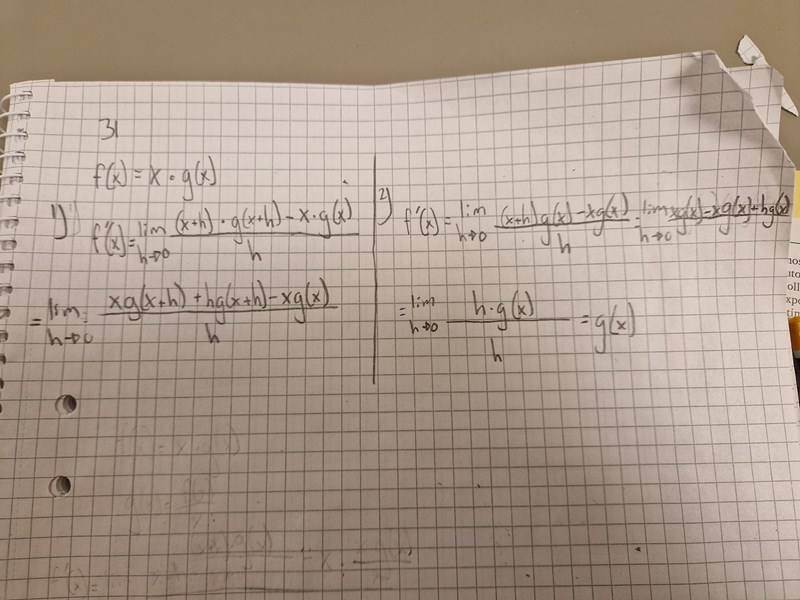 31
f(x) = x · g(x)
1) f'(x) = lim h→0 (x+h) · g(x+h) − x · g(x) / h
= lim h→0 = xg(x+h) + hg(x+h) − xg(x) / h
2) f'(x) = lim h→0 (x+h) g(x) − xg(x) / h = lim h→0 xg(x) − xg(x) + hg(x)
= lim h→0 h · g(x) / h = g(x)